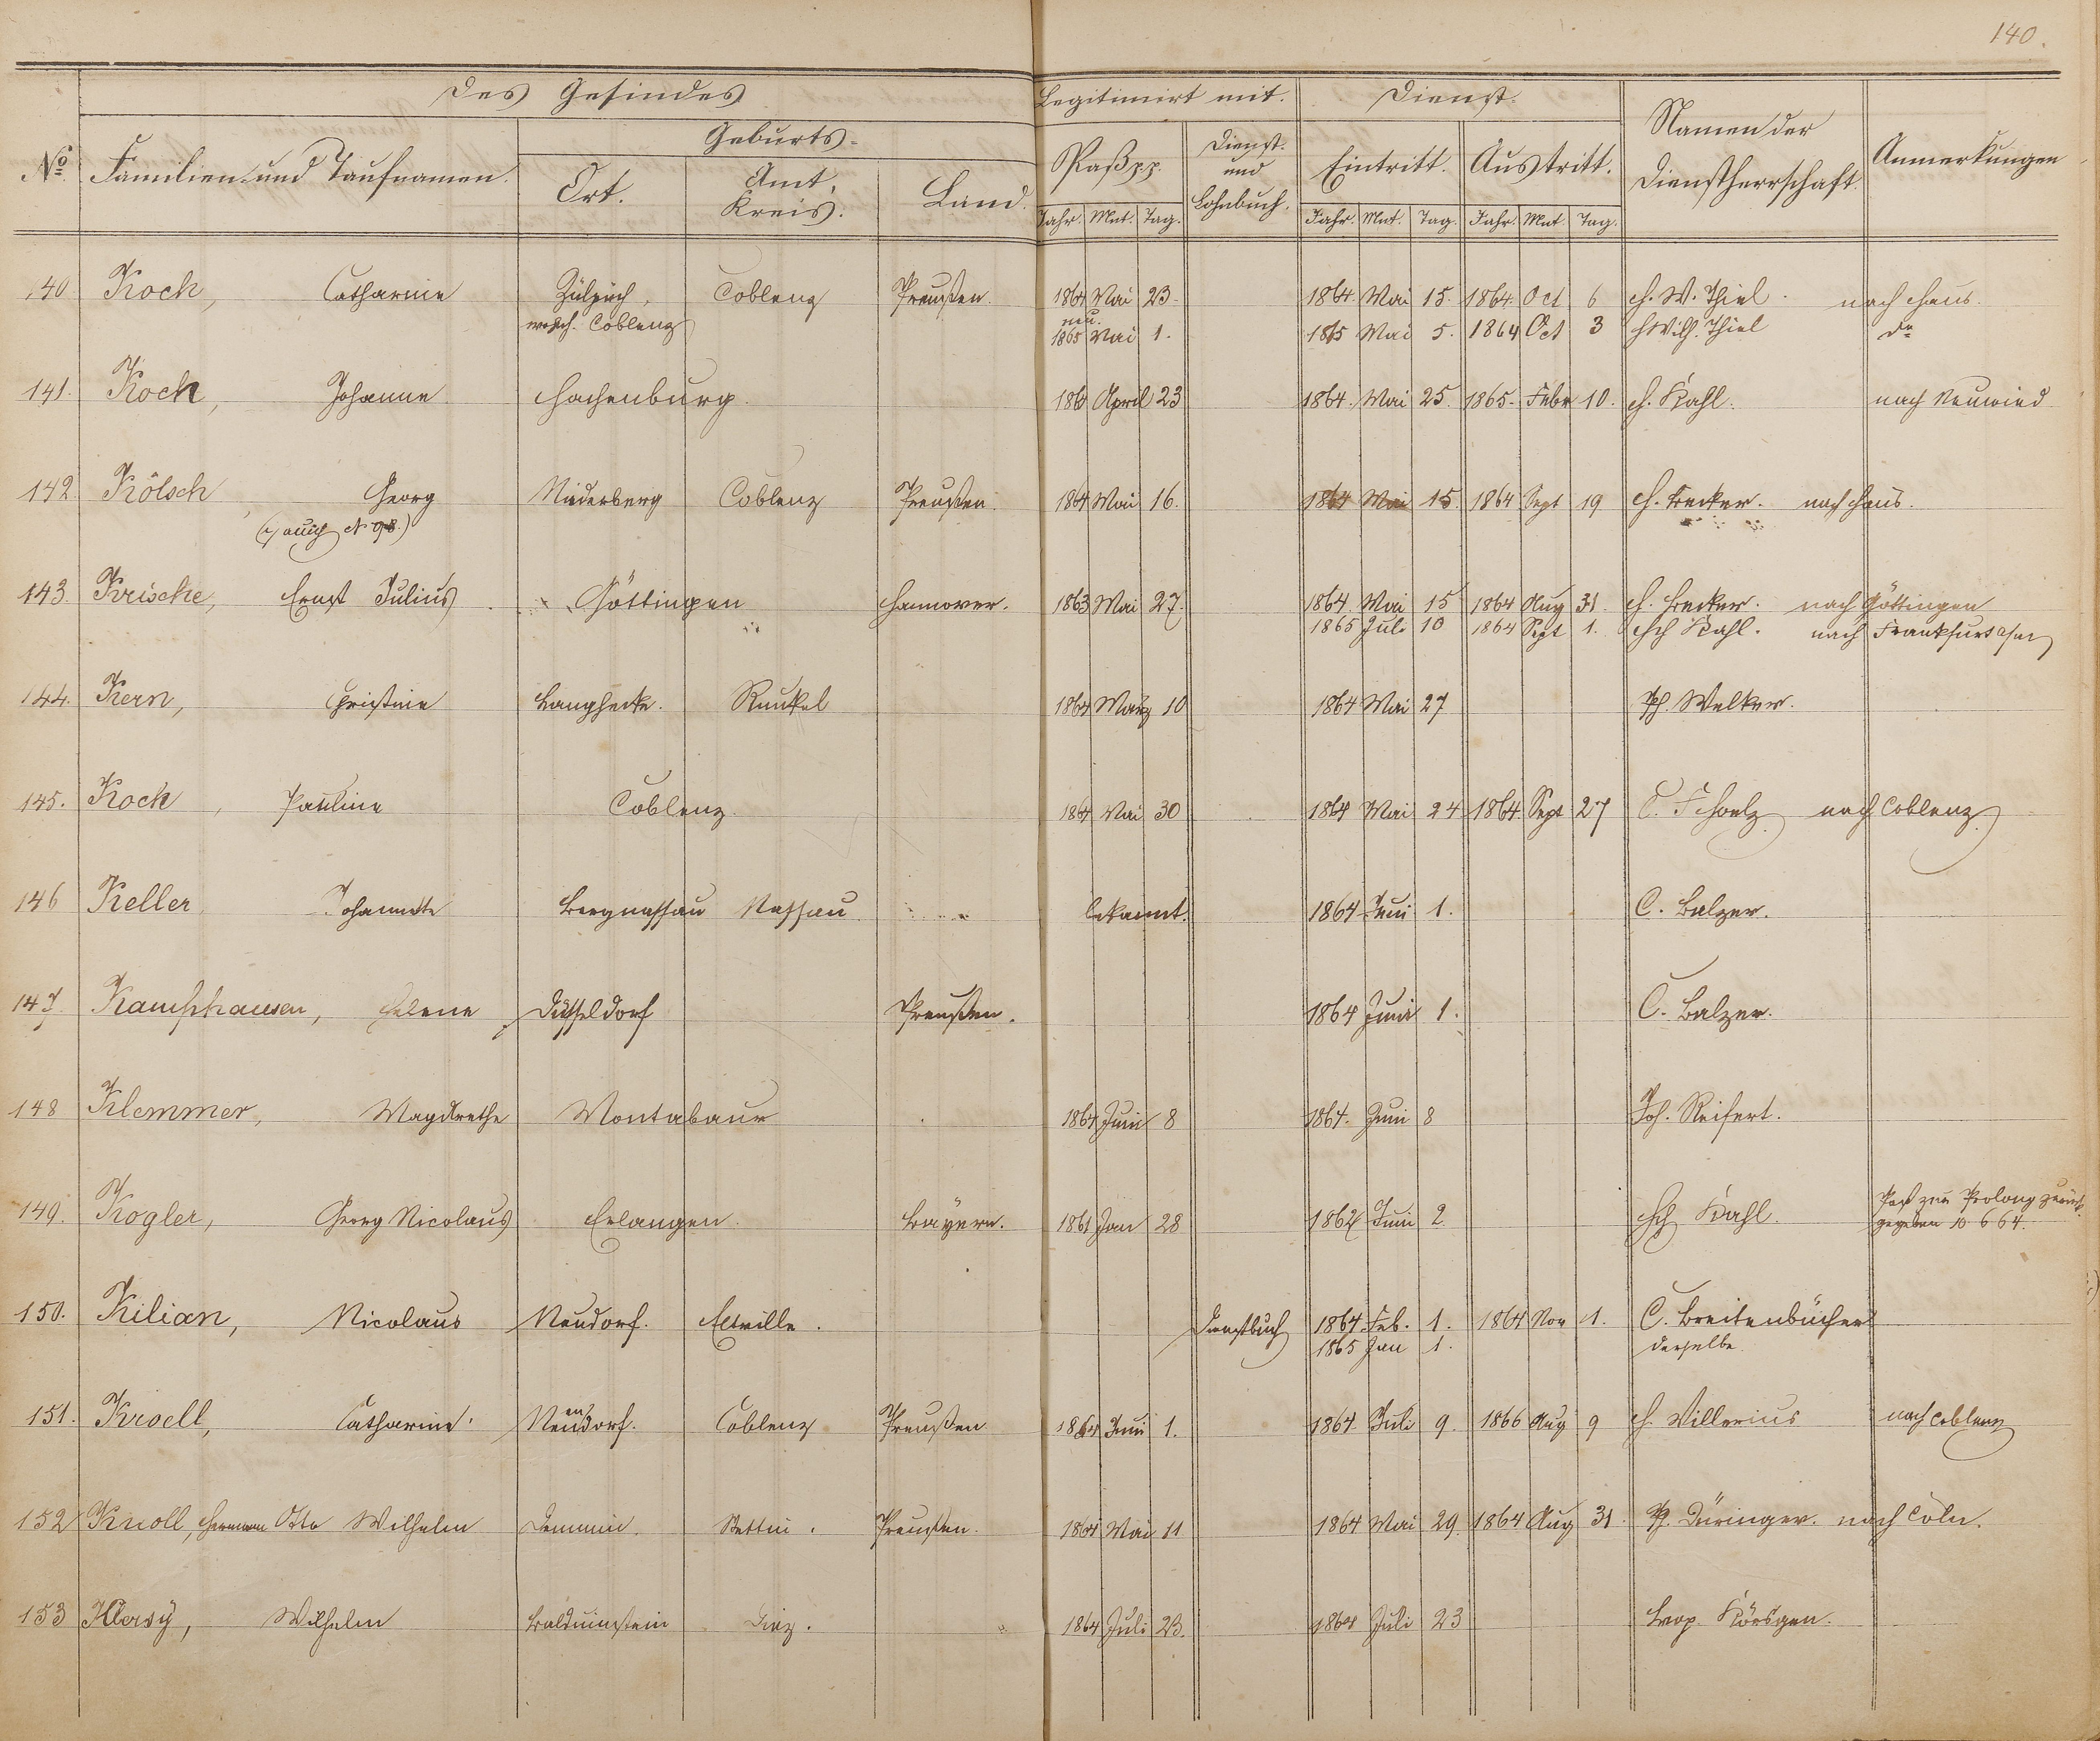 140.
Des Gesindes
Legitimirt mit.
Dienst.
No. Familien und Taufnamen. Geburts- Ort. Amt, Kreis. Land. Paß pp. Dienst- und Lohnbuch. Eintritt. Austritt. Namen der Dienstherrschaft. Anmerkungen
Jahr. Mnt. Tag. Jahr. Mnt. Tag. Jahr. Mnt. Tag.
140 Koch, Catharine Zülpich, Coblenz Preußen. 1864 Mai 23. 1864. Mai 15. 1864. Oct 6 H. W. Thiel. nach Haus.
Coblenz neu. 1865 Mai 1. 1865 Mai 5. 1864 Oct 3 H Wilh. Thiel do
141. Koch, Johanne Hachenburg. 1864 April 23 1864. Mai 25. 1865. Febr 10. H. Kahl. nach Neuwied
142. Kölsch, Georg Niederberg Coblenz Preußen. 1864 Mai 16. 1864 Mai 15. 1864 Sept 19 H. Becker. nach Haus.
(auch No 98.)
143. Krische, Ernst Julius Göttingen Hannover. 1863 Mai 27. 1864 Mai 15 1864 Aug 31. H. Becker. nach Göttingen
1865 Juli 10 1864 Sept 1. Hch Kahl. nach Frankfurt a/m
144. Kern, Christine Langhecke. Runkel 1864 März 10 1864 Mai 27 Ph. Welker.
145. Koch, Pauline Coblenz. 1864 Mai 30 1864 Mai 24 1864. Sept 27 C. Scholz nach Coblenz.
146 Keller Johannette Bergnassau Nassau bekannt. 1864 Juni 1. C. Balzer.
147. Kamphausen, Helene Düsseldorf Preußen. 1864 Juni 1. C. Balzer.
148 Klemmer, Magdrethe Montabaur 1864 Juni 8 1864. Juni 8 Joh. Reifert.
149. Kogler, Georg Nicolaus Erlangen. Bayern. 1861 Jan 28 1862 Juni 2. Hch Kahl. Paß zur Prolong zurück
gegeben 10 6 64.
150. Kilian, Nicolaus Neudorf. Eltville. Dienstbuch 1864 Feb. 1. 1864 Nov 1. C. Breitenbücher
1865 Jan 1. derselbe.
151. Kroell, Catharine. Neuendorf. Coblenz Preußen 1864 Juni 1. 1864. Juli 9. 1866 Aug 9 H. Villerius nach Coblenz
152 Knoll, Hermann Otto Wilhelm Demmin. Stettin. Preußen. 1864 Mai 11 1864 Mai 29. 1864 Aug 31. Ph. Düringer. nach Cöln.
153 Klersy, Wilhelm Balduinstein Diez. 1864 Juli 23. 1864 Juli 23 Körsgen.